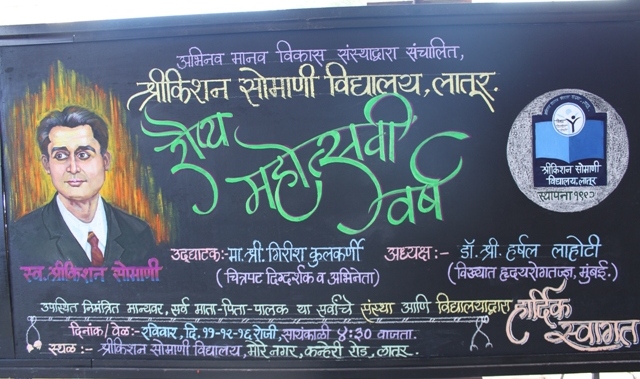 अभिनव मानव विकास संस्थाद्वारा संचालित,
श्रीकिशन सोमाणी विद्यालय, लातूर.
रौप्य
महोत्सवी
वर्ष
श्रीकिशन सोमाणी
विद्यालय, लातूर
स्थापना १९९२
स्व. श्रीकिशन सोमाणी
उद्घाटक:- मा. श्री. गिरीश कुलकर्णी
(चित्रपट दिग्दर्शक व अभिनेता)
अध्यक्ष:- डॉ. श्री. हर्षल लाहोटी
(विख्यात हृदयरोगतज्ज्ञ, मुंबई.)
उपस्थित निमंत्रित मान्यवर, सर्व माता-पिता-पालक या सर्वांचे संस्था आणि विद्यालयाद्वारा
हार्दिक
स्वागत
दिनांक/वेळ:- रविवार, दि. ११-१२-१६ रोजी, सायंकाळी ४:३० वाजता.
स्थळ:- श्रीकिशन सोमाणी विद्यालय, मोरे नगर, कन्हेरी रोड, लातूर.